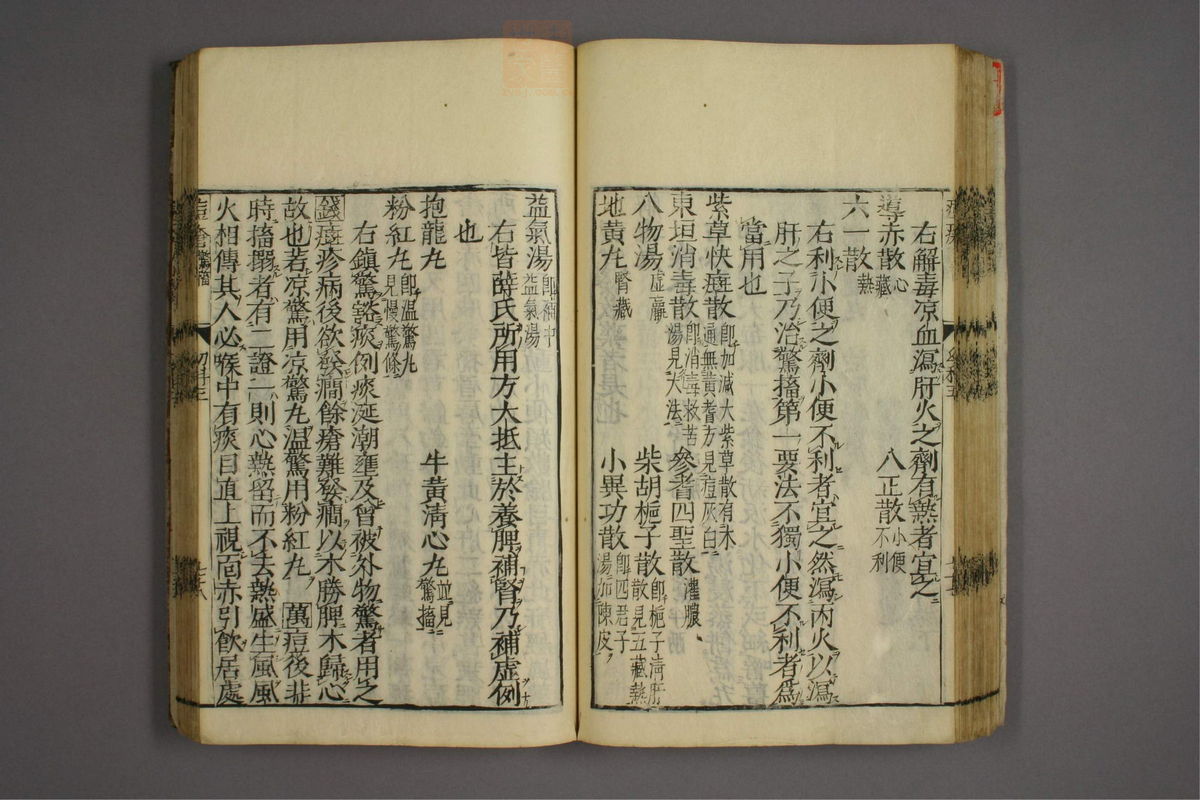 右解毒凉血瀉肝火之劑有熱者宜之
導赤散心藏 八正散小便不利
六一散熱
右利小便之劑小便不利者宜之然瀉丙火以瀉
肝之子乃治驚搐第一要法不獨小便不利者爲
當用也
紫草快癍散即加減大紫草散有木通無黄耆方見痘灰白
東垣消毒散即消毒救苦湯見大法 參耆四聖散灌膿
八物湯虚羸 柴胡梔子散即梔子清肝散見五藏熱
地黄丸腎藏 小異功散即四君子湯加陳皮
益氣湯即補中益氣湯
右皆薛氏所用方大抵主於養脾補腎乃補虚例
也
抱龍丸 牛黄清心丸並見驚搐
粉紅丸即温驚丸見慢驚條
右鎮驚豁痰例痰涎潮壅及曾被外物驚者用之
錢癍疹病後欲發癎餘瘡難發癎以木勝脾木歸心
故也若凉驚用凉驚丸温驚用粉紅丸 萬痘後非
時搐搦者有二證一則心熱留而不去熱盛生風風
火相傳其人必喉中有痰目直上視面赤引飲居處